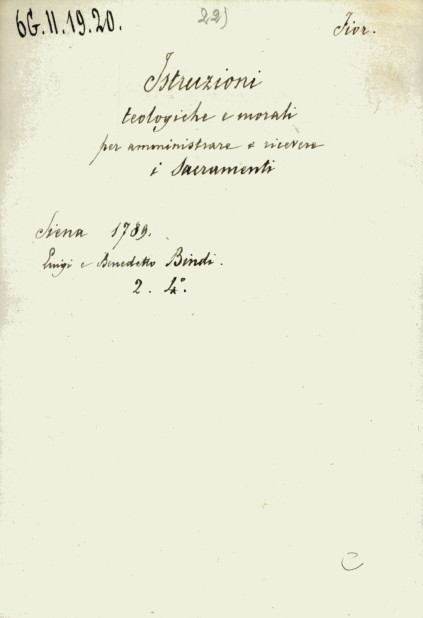 6G.II.19.20. 22) Fior.
Istruzioni
teologiche e morali
per amministrare e ricevere
i Sacramenti
Siena 1789.
Luigi e Benedetto Bindi.
2. 4°.
C